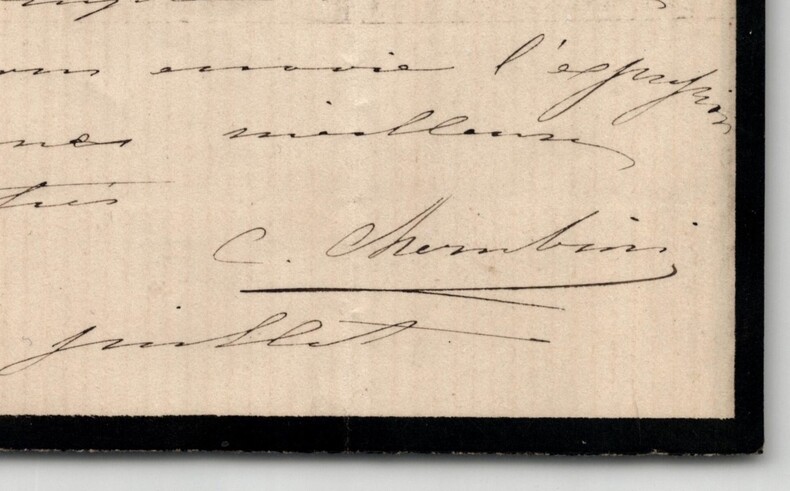 envoie l'expression
mes meilleurs
C. Cherubini
juillet